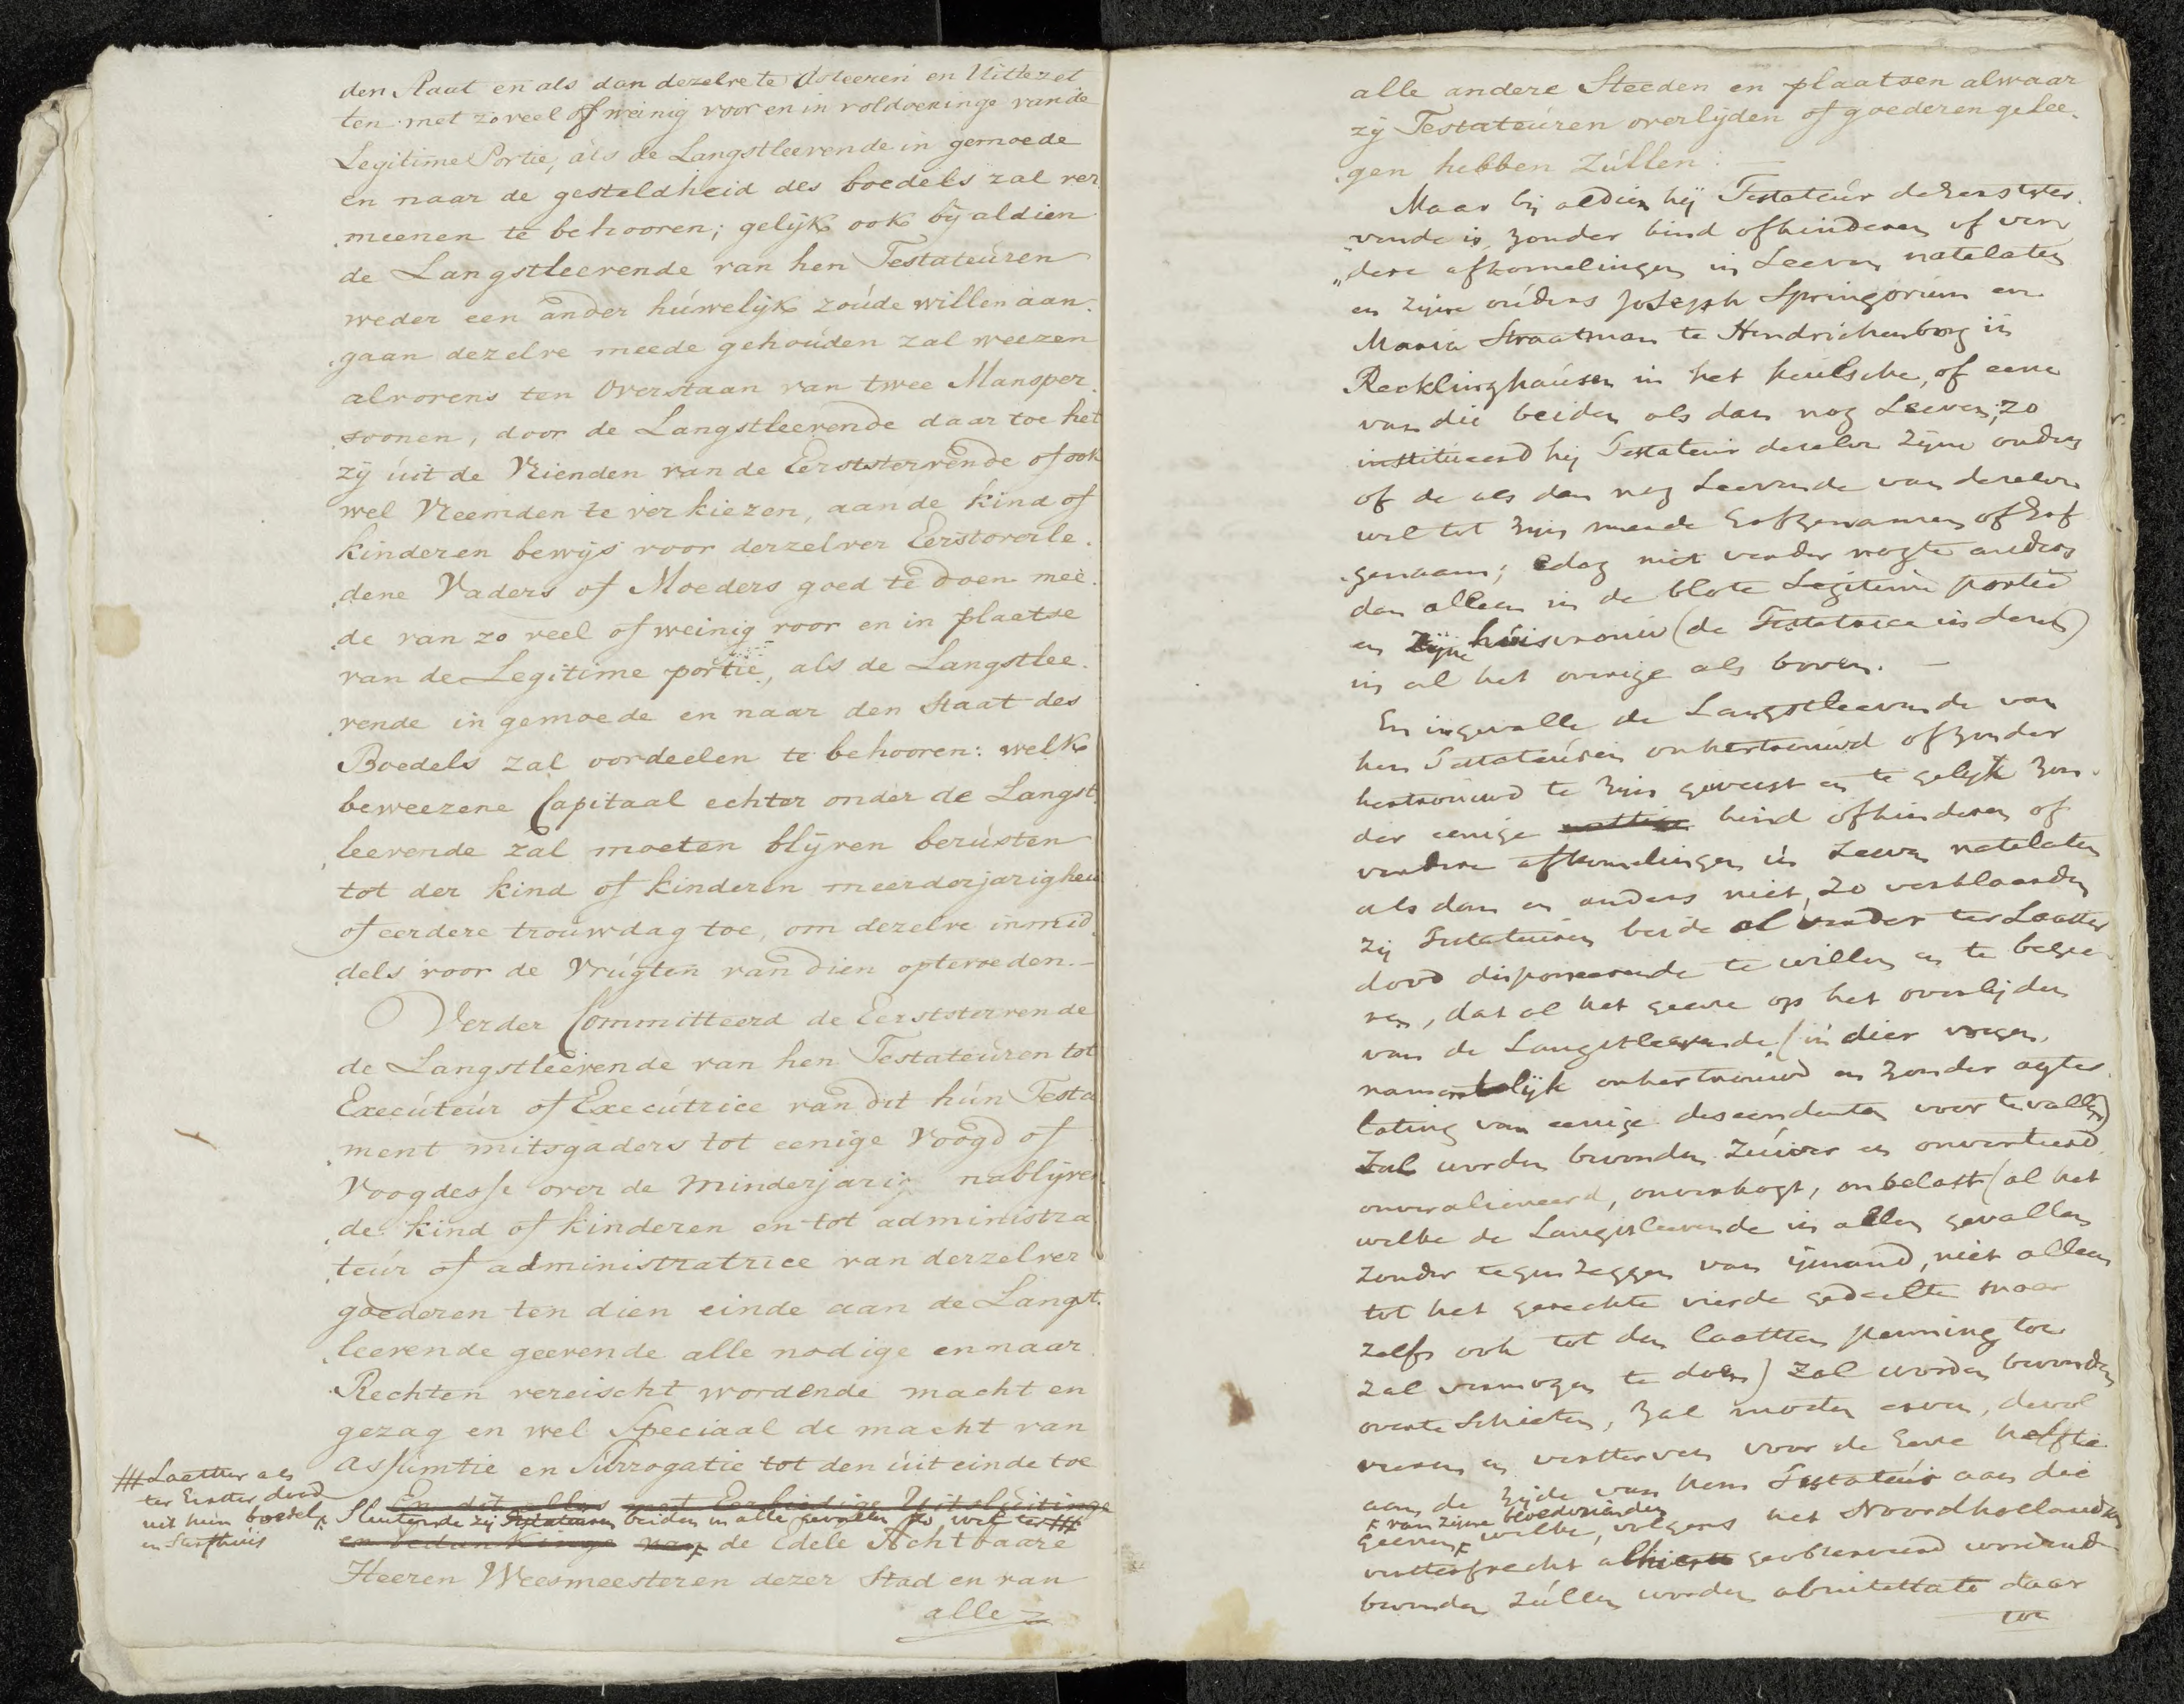 den Raat en als dan dezelve te Asteeren en Uittezet
ten met zo veel of weinig voor en in voldoeninge van de
Legitime Portie, als de Langstleevende in gemoede
en naar de gesteldheid des boedels zal ver
meenen te behooren; gelijk ook bij aldien
de Langstleevende van hen Testateúren
weder een ander húwelijk zoúde willen aan
gaan dezelve meede gehoúden zal weezen
alvorens ten Overstaan van twee Mansper
soonen, door de Langstleevende daar toe het
zij úit de Vrienden van de Eerststervende of ook
wel Vreemden te verkiezen, aan de kind of
kinderen bewijs voor derzelver Eerstoverle
dene Vaders of Moeders goed te doen mee
de van zo veel of weinig voor en in plaatse
van de Legitime portie, als de Langstlee
vende in gemoede en naar den Staat des
Boedels zal oordeelen te behooren: welk
beweezene Capitaal echter onder de Langst
leevende zal moeten blijven berústen
tot der kind of kinderen meerderjarigheid
of eerdere troúwdag toe, om dezelve inmid
dels voor de Vrúgten van dien optevoeden.
Verder Committeerd de Eerststervende
de Langstleevende van hen Testateúren tot
Execúteúr of Execútrice van dit hún Testa
ment mitsgaders tot eenige Voogd of
Voogdesse over de Minderjarig nablijven
de kind of kinderen en tot administra
teúr of administratrice van derzelver
goederen ten dien einde aan de Langst
leevende geevende alle nodige en naar
Rechten vereischt wordende macht en
gezag en wel Speciaal de macht van
Assúmtie en Súrrogatie tot den úiteinde toe
En dit alles met Eerbiedige Uitsluitinge
Sluitende zij Testateuren beiden in alle gevallen zo wel ter ###
### Laatster als
ter Eerster dood
uit hun boedel
en Sterfhuis
en bedankinge van de Edele Achtbaare
Heeren Weesmeesteren dezer Stad en van
alle
alle andere Steeden en plaatsen alwaar
zij Testateúren overlijden of goederen gelee
gen hebben zúllen.
Maar bij aldien hij Testateúr de Eerststerv
vende is, zonder kind of kinderen of ver
dere afkomelingen in Leeven natelaten
en zijne oúders Joseph Springorum en
Maria Straatman te Hendrichenborg in
Recklinghaúsen in het keulsche, of eene
van die beiden als dan nog Leeven; zo
institúeerd hij Testateúr dezelve zijne ouders
of de als dan nog Leevende van dezelve
wel tot zijn meede Erfgenamen of Erf
genaam; edog niet verder nogte anders
dan alleen in de blote Legitime portie
en zijne húisvrouw (de Testatrice in dezen)
in al het overige als boven.
En ingevalle de Langstleevende van
hen Testateúren onhertrouwd of zonder
hertrouwd te zijn geweest en te gelijk zon
der eenige kind of kinderen of
verdere afkomelingen in Leeven natelaten
als dan en anders niet, zo verklaarden
zij Testateuren beide al verder ter Laatster
dood disponeerende te willen en te begee
ren, dat al het geene op het overlijden
van de Langstleevende (in dier voegen,
namentlijk onhertrouwd en zonder agter
lating van eenige descendenten voor te vallen)
Zal worden bevonden Zúiver en onverteerd
onveralieneerd, onverkogt, onbelast (al het
welke de Langstleevende in allen gevallen
zonder tegenzeggen van ijmand, niet alleen
tot het gerechte vierde gedeelte maar
zelfs ook tot den laatsten penning toe
zal vermogen te doen) zal worden bevonden
overte schieten, zal moeten erven, devol
veeren en versterven voor de Eene helfte
aan de zijde van hem Testateúr aan die
geenen welke, volgens het Noordhollandsch
van zijne bloedvrienden
versterfrecht alhier geobserveerd wordende
bevonden zúllen worden abintestato daar
toe